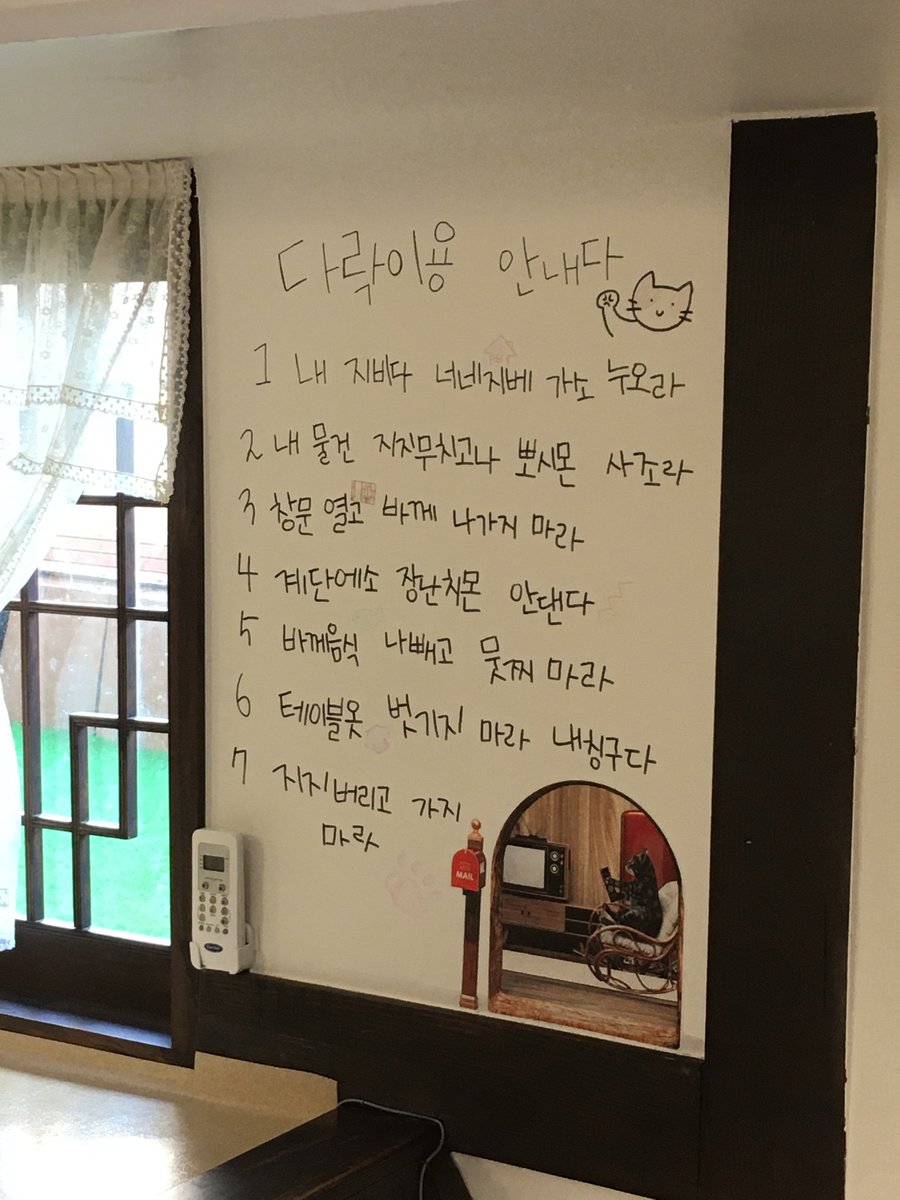 다락이용 안내다
1 내 지비다 너네지베 가소 누오라
2 내 물건 지지무치고나 뽀시몬 사조라
3 창문 열고 바께 나가지 마라
4 계단에소 장난치몬 안댄다
5 바께음식 나빼고 뭇찌 마라
6 테이블옷 벗기지 마라 내칭구다
7 지지버리고 가지
마라
MAIL